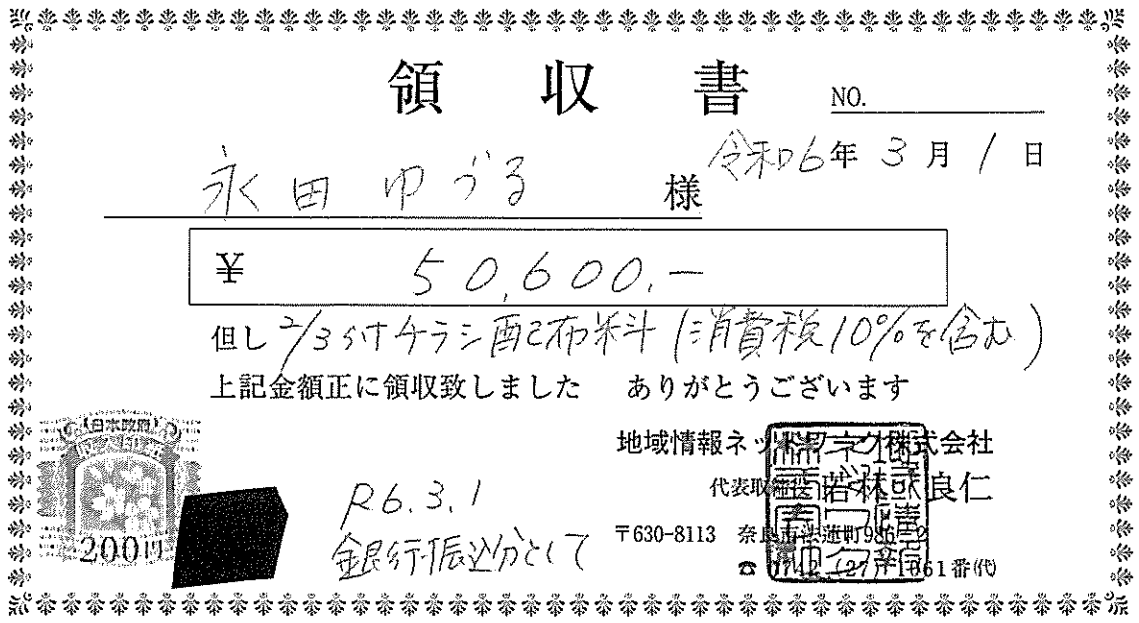 領収書
NO.
令和6年3月1日
永田ゆづる 様
¥ 50,600.-
但し 2/3付チラシ配布料(消費税10%を含む)
上記金額正に領収致しました ありがとうございます
日本政府
200円
R6.3.1
銀行振込分として
地域情報ネットワーク株式会社
代表取締役 若林 良仁
〒630-8113 奈良市法蓮町986-2
☎ 0742-(27)-1061番(代)